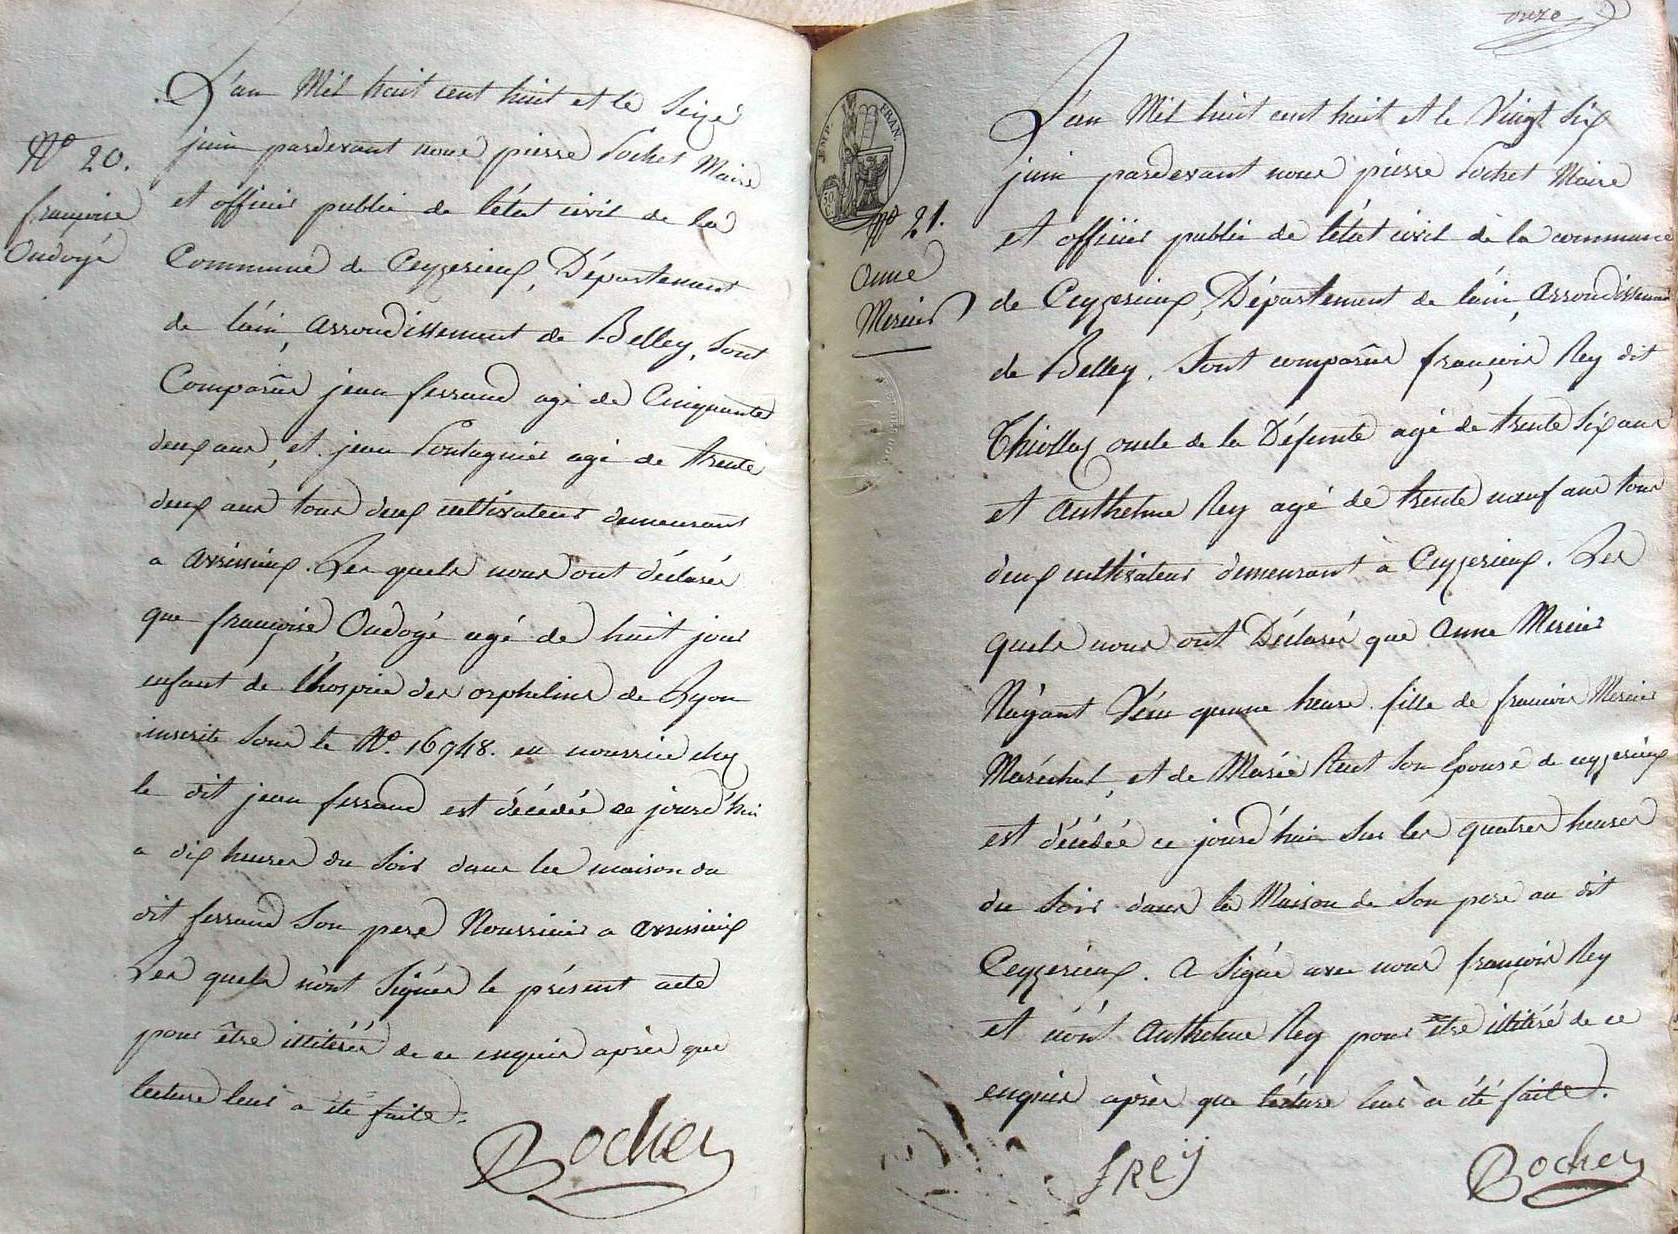 N° 20.
françoise
Oudogé
L'an Mil huit cent huit et le Seize
juin pardevant nous pierre Pochet Maire
et officier public de l'état civil de la
Commune de Ceyzerieux, Département
de l'ain, arrondissement de Belley, Sont
Comparus jean ferrand agé de Cinquante
deux ans, et jean Pontagnier agé de trente
deux ans tous deux cultivateurs demeurant
a avrissieux. Les quels nous ont déclarés
que françoise Oudogé agé de huit jour
enfant de l'hospice des orphelins de Lyon
inscrite sous le N°. 16948. en nourrice chez
le dit jean ferrand est décédée ce jourd'hui
a dix heures du soir dans la maison du
dit ferrand Son pere Nourricier a avrissieux
Les quels n'ont Signés le présent acte
pour être illitérés de ce enquis après que
lecture leur a été faite.
Bochet
onze
TIMP. FRAN
N° 21.
Anne
Mercier
L'an Mil huit cent huit et le Vingt Six
juin pardevant nous pierre Pochet Maire
et officier public de l'état civil de la commune
de Ceyzerieux, Département de l'ain, arrondissement
de Belley. Sont comparus françois Rey dit
Thiollaz oncle de la Défunte agé de trente Six ans
et Anthelme Rey agé de trente neuf ans tous
deux cultivateurs demeurant à Ceyzerieux. Les
quels nous ont Déclarés que Anne Mercier
N'ayant Vécu qu'une heure fille de francois Mercier
Maréchal, et de Marie Son Epouse de ceyzerieux
est décédée ce jourd'hui Sur les quatres heures
du Soir dans la Maison de Son pere au dit
Ceyzerieux. A Signé avec nous françois Rey
et non Anthelme Rey pour être illitéré de ce
enquis après que lecture leur a été faite.
f Rey
Bochet